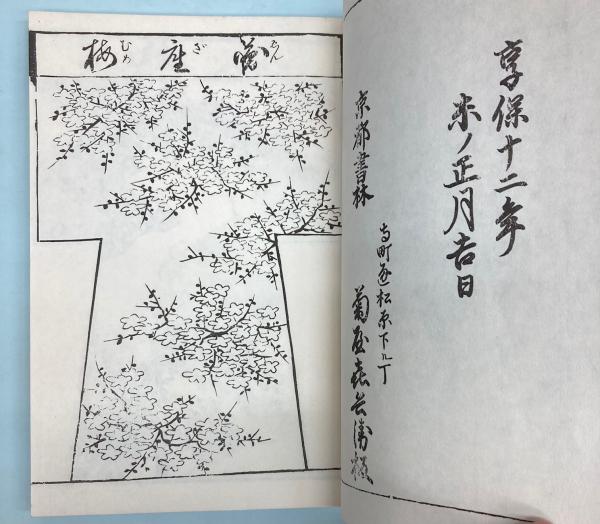 享保十二年
未ノ正月吉日
寺町通松原下ル丁
京都書林
菊屋喜兵衛板
座梅
ざ
むめ